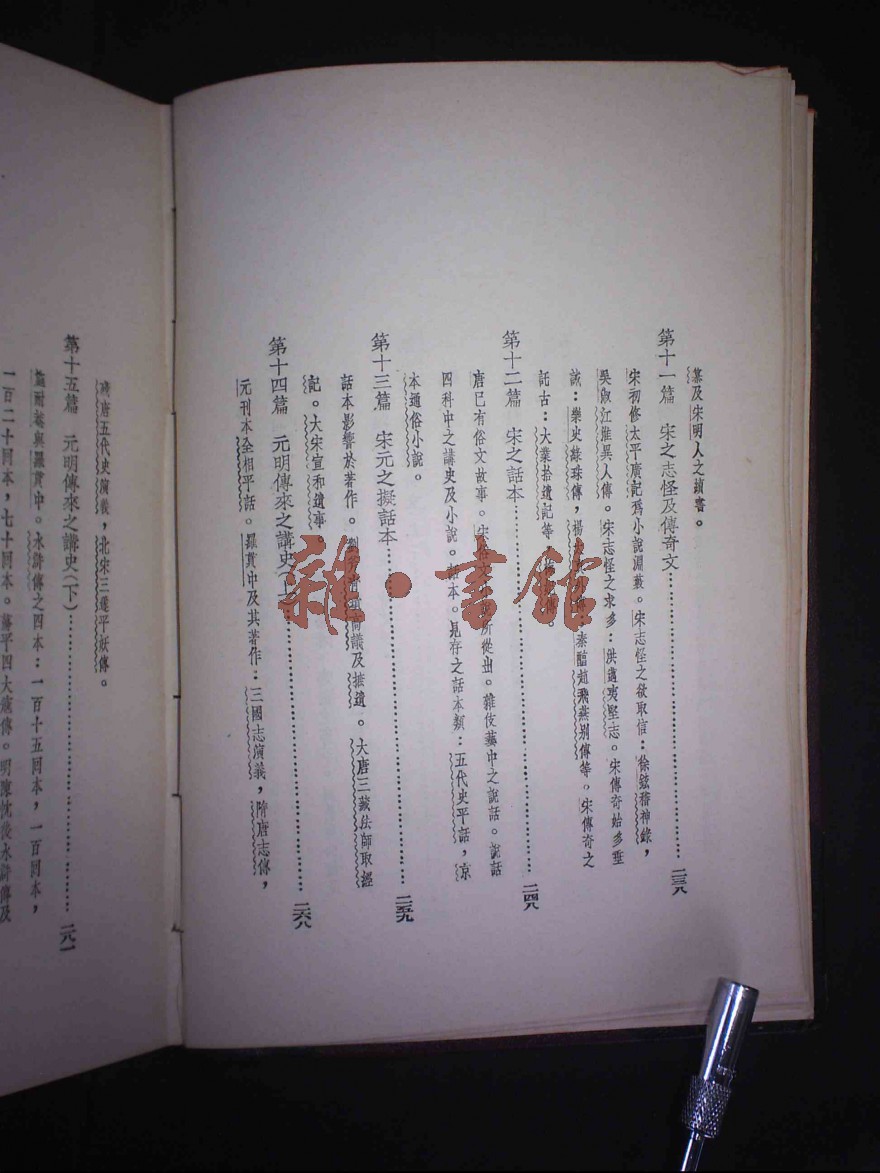 纂及宋明人之續書。
第十一篇 宋之志怪及傳奇文……二三八
宋初修太平廣記爲小說淵藪。宋志怪之欲取信：徐鉉稽神錄，
吳淑江淮異人傳。宋志怪之求多：洪邁夷堅志。宋傳奇始多垂
誡：樂史綠珠傳，楊 秦醞趙飛燕別傳等。宋傳奇之
託古：大業拾遺記等
第十二篇 宋之話本……二四八
唐已有俗文故事。宋 所從出。雜伎藝中之說話。說話
四科中之講史及小說。話本。見存之話本類：五代史平話，京
本通俗小說。
第十三篇 宋元之擬話本……二五九
話本影響於著作。 議及摭遺。大唐三藏法師取經
記。大宋宣和遺事
第十四篇 元明傳來之講史（上）……二六八
元刊本全相平話。羅貫中及其著作：三國志演義，隋唐志傳，
殘唐五代史演義，北宋三遂平妖傳。
第十五篇 元明傳來之講史（下）……二八一
施耐菴與羅貫中。水滸傳之四本：一百十五回本，一百回本，
一百二十回本，七十回本。蕩平四大寇傳。明陳忱後水滸傳及
雜·書館